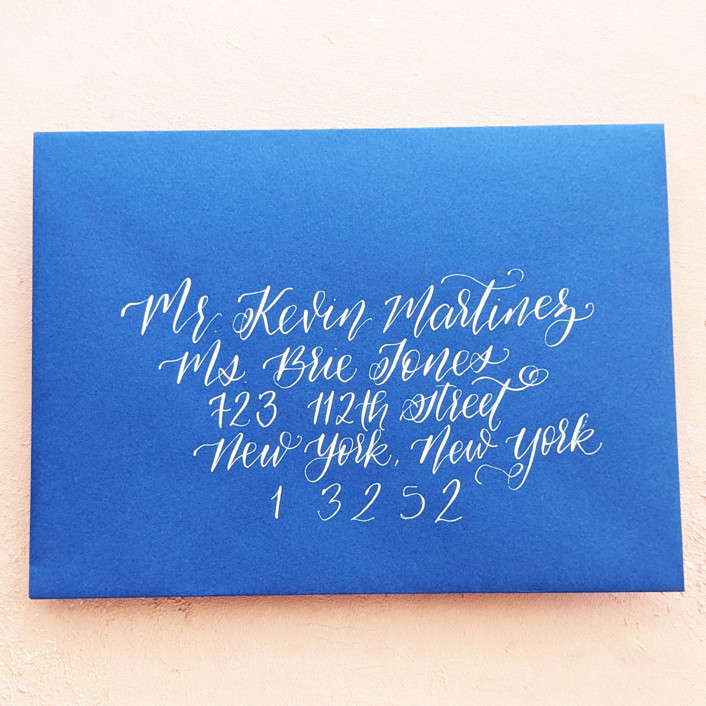 Mr. Kevin Martinez
Ms Brie Jones
723 112th Street
New York, New York
13252